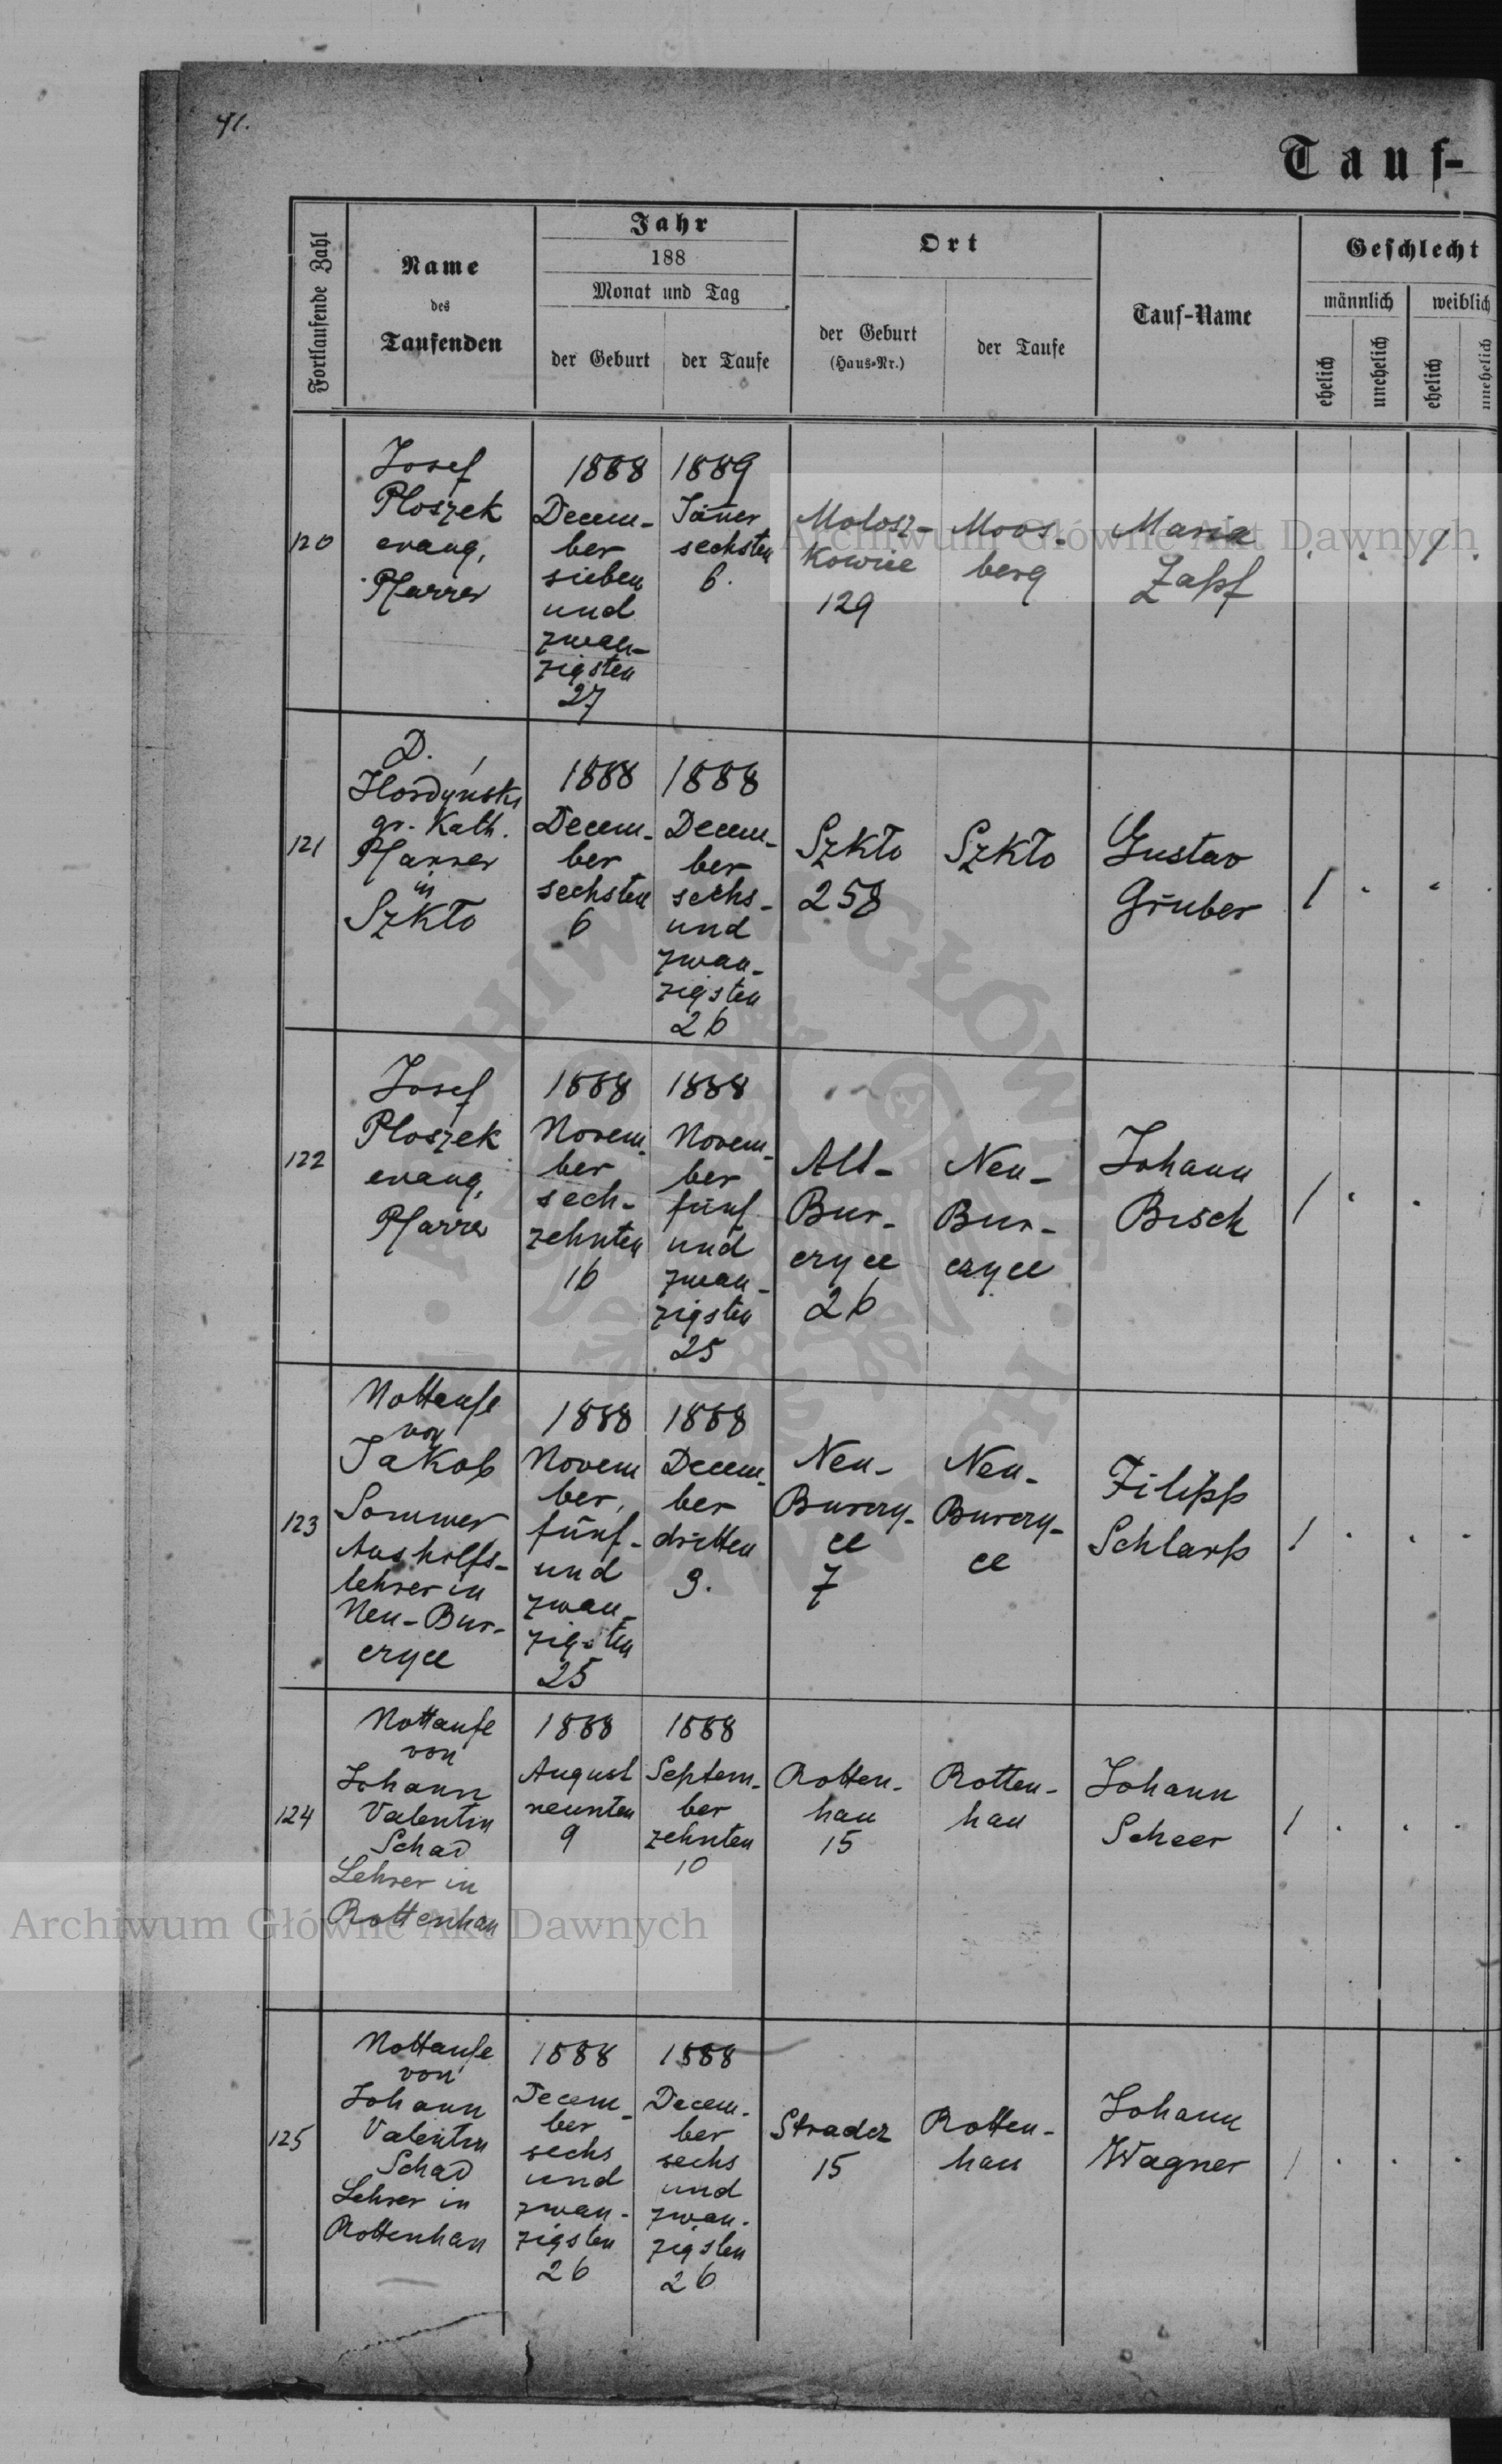 41.
Tauf-
Fortlaufende Zahl
Name
des
Taufenden
Jahr
188
Monat und Tag
der Geburt
der Taufe
Ort
der Geburt
(Haus-Nr.)
der Taufe
Tauf-Name
Geschlecht
männlich
weiblich
ehelich
unehelich
ehelich
unehelich
120
Josef
Ploszek
evang.
Pfarrer
1888
Decem-
ber
sieben
und
zwan-
zigsten
27
1889
Jäner
sechsten
6.
Molosz-
kowice
129
Moos-
berg
Maria
Zapf
1
121
D.
Hordyński
gr. Kath.
Pfarrer
in
Szkło
1888
Decem-
ber
sechsten
6
1888
Decem-
ber
sechs-
und
zwan-
zigsten
26
Szkło
258
Szkło
Gustav
Gruber
1
122
Josef
Ploszek
evang.
Pfarrer
1888
Novem-
ber
sech-
zehnten
16
1888
Novem-
ber
fünf
und
zwan-
zigsten
25
Alt-
Bur-
czyce
26
Neu-
Bur-
czyce
Johann
Bisch
1
123
Nottaufe
von
Jakob
Sommer
Aushilfs-
lehrer in
Neu-Bur-
czyce
1888
Novem
ber,
fünf-
und
zwan-
zigsten
25
1888
Decem-
ber
dritten
3.
Neu-
Burczy-
ce
7
Neu-
Burczy-
ce
Filipp
Schlarp
1
124
Nottaufe
von
Johann
Valentin
Schad
Lehrer in
Rottenhan
1888
August
neunten
9
1888
Septem-
ber
zehnten
10
Rotten-
han
15
Rotten-
han
Johann
Scheer
1
125
Nottaufe
von
Johann
Valentin
Schad
Lehrer in
Rottenhan
1888
Decem-
ber
sechs
und
zwan-
zigsten
26
1888
Decem-
ber
sechs
und
zwan-
zigsten
26
Stradcz
15
Rotten-
han
Johann
Wagner
1
Archiwum Główne Akt Dawnych
Archiwum Główne Akt Dawnych